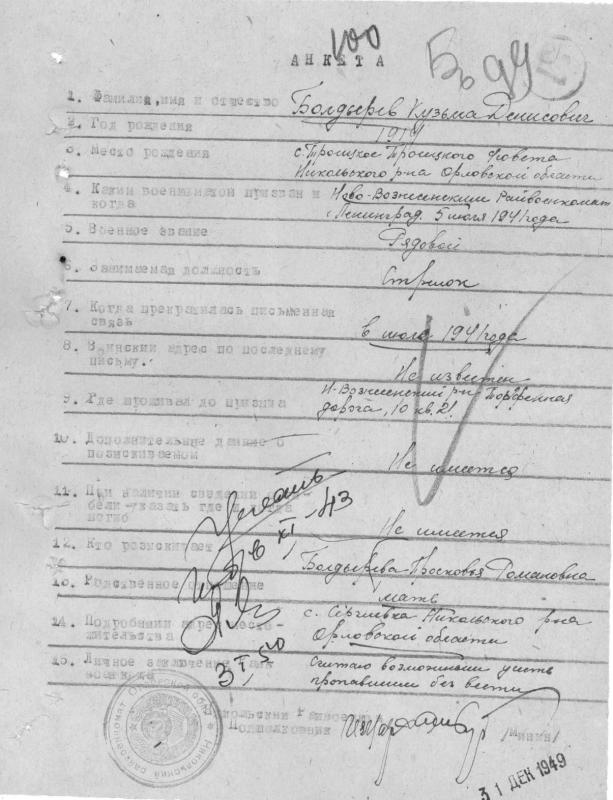 100
Бо 99
АНКЕТА
1. Фамилия, имя и отчество Болдырев Кузьма Денисович
2. Год рождения 1914
3. Место рождения с. Троицкое Троицкого совета
Никольского р-на Орловской области
4. Каким военкоматом призван и Ново-Вознесенским Райвоенкомат
когда г. Ленинград. 5 июля 1941 года
5. Военное звание Рядовой
6. Занимаемая должность Стрелок
7. Когда прекратилась письменная
связь в июле 1941 года
8. Воинский адрес по последнему
письму. Не известен
9. Где проживал до призыва Н-Вознесенский р-н Торфянная
дорога, 10 кв. 21.
10. Дополнительные данные о
розыскиваемом Не имеется
11. При наличии сведений о
гибели указать где
погиб Не имеется
12. Кто розыскивает Болдырева Просковья Романовна
13. Родственное отношение мать
14. Подробный адрес место-
жительства с. Сергиевка Никольского р-на
Орловской области
15. Личное заключение Считаю возможным учесть
пропавшим без вести
XI-43
3/I 50
Никольский Райвоенком
Подполковник /Минин/
31 ДЕК 1949